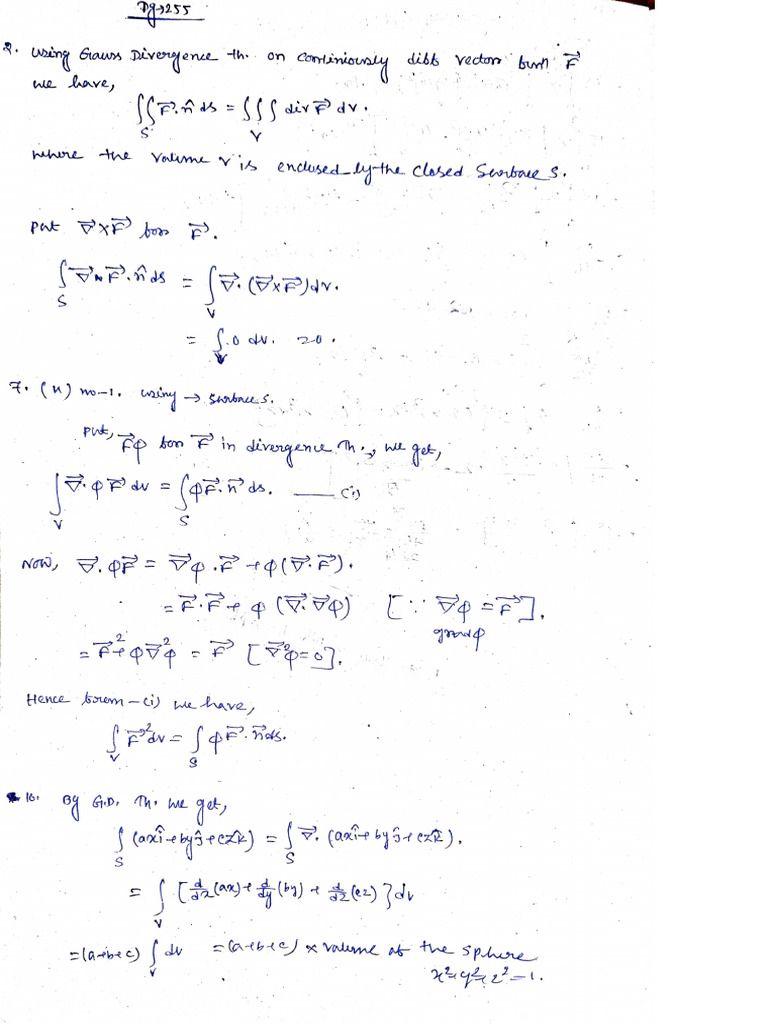 Pg→255
2. Using Gauss Divergence th. on continiously diff vector funⁿ F⃗
we have,
∬_S F⃗.n̂ ds = ∭_V div F⃗ dv.
where the volume v is enclosed by the closed Surface S.
Put ∇⃗×F⃗ for F⃗.
∫_S ∇⃗×F⃗.n̂ ds = ∫_V ∇⃗.(∇⃗×F⃗)dv.
= ∫_V .0 dv. = 0.
7. (u) no-1. using → surface S.
Put, F⃗φ for F⃗ in divergence Th., we get,
∫_V ∇⃗.φF⃗ dv = ∫_S φF⃗.n⃗ ds. —— (i)
Now, ∇⃗.φF⃗ = ∇⃗φ.F⃗ + φ(∇⃗.F⃗).
= F⃗.F⃗ + φ (∇⃗.∇⃗φ) [∵ ∇⃗φ = F⃗].
grad φ
= F⃗² + φ∇⃗²φ = F⃗ [∇⃗²φ = 0].
Hence from -(i) we have,
∫_V F⃗² dv = ∫_S φF⃗.n⃗ds.
10. By G.D. Th. we get,
∫_S (axî + byĵ + czk̂) = ∫_S ∇⃗.(axî + byĵ + czk̂).
= ∫_V [d/dx (ax) + d/dy (by) + d/dz (cz)} dv
= (a+b+c) ∫_V dv = (a+b+c) × volume of the sphere
x²+y²+z² = 1.